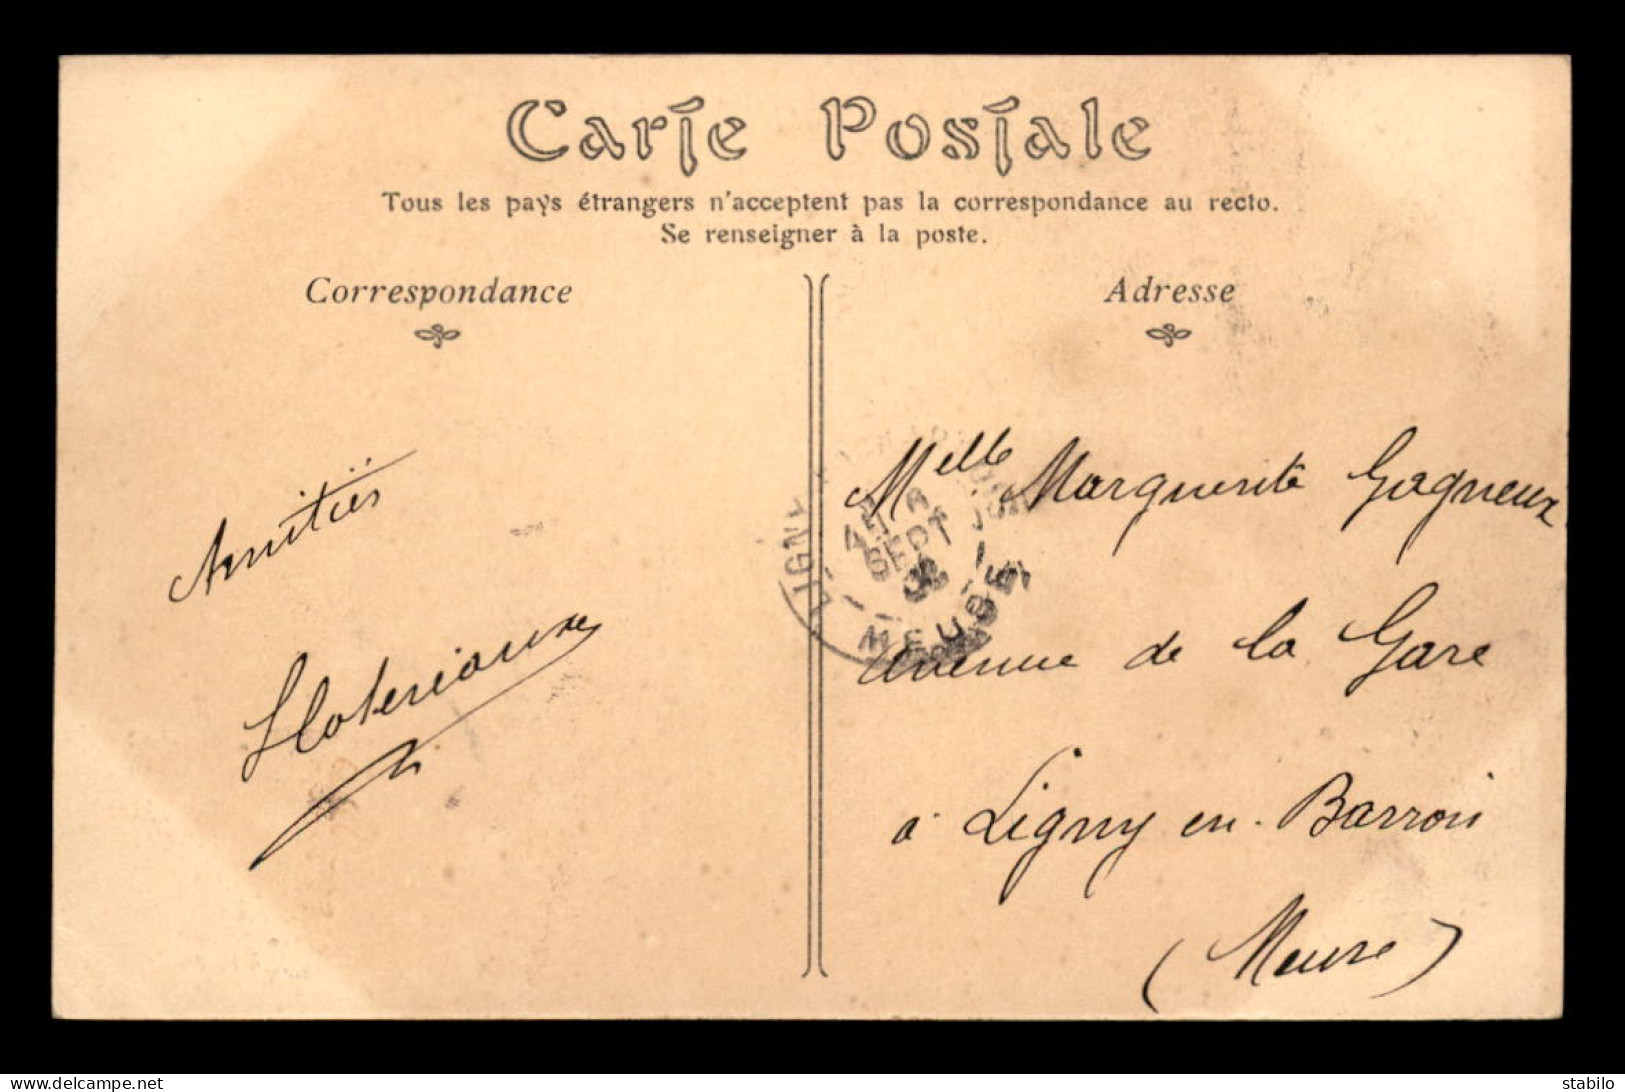 Carte Postale
Tous les pays étrangers n'acceptent pas la correspondance au recto.
Se renseigner à la poste.
Correspondance
Adresse
Amitiés
Melle Marguerite Gagneux
Avenue de la Gare
à Ligny en-Barrois
(Meuse)
LIGNY
SEPT
MEUSE
Website: delcampe.net
stabilo